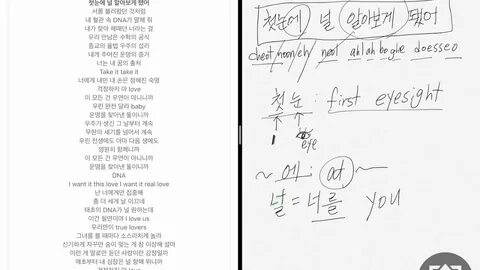 첫눈에 널 알아보게 됐어
서롤 불러왔던 것처럼
내 혈관 속 DNA가 말해 줘
내가 찾아 헤매던 너라는 걸
우리 만남은 수학의 공식
종교의 율법 우주의 섭리
내게 주어진 운명의 증거
너는 내 꿈의 출처
Take it take it
너에게 내민 내 손은 정해진 숙명
걱정하지 마 love
이 모든 건 우연이 아니니까
우린 완전 달라 baby
운명을 찾아낸 둘이니까
우주가 생긴 그 날부터 계속
무한의 세기를 넘어서 계속
우린 전생에도 아마 다음 생에도
영원히 함께니까
이 모든 건 우연이 아니니까
운명을 찾아낸 둘이니까
DNA
I want it this love I want it real love
난 너에게만 집중해
좀 더 세게 날 이끄네
태초의 DNA가 널 원하는데
이건 필연이야 I love us
우리만이 true lovers
그녀를 볼 때마다 소스라치게 놀라
신기하게 자꾸만 숨이 멎는 게 참 이상해 설마
이런 게 말로만 듣던 사랑이란 감정일까
애초부터 내 심장은 널 향해 뛰니까
걱정하지 마 love
첫눈에 널 알아보게 됐어
neol ah lah boghe doesseo
첫눈: first eyesight
1 eye
~에: at~
널=너를 you